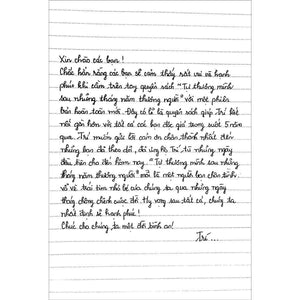 Xin chào các bạn!
Chắc hẳn rằng các bạn sẽ cảm thấy rất vui và hạnh
phúc khi cầm trên tay quyển sách "Tự thương mình
sau những tháng năm thương người" với một phiên
bản hoàn toàn mới. Đây có lẽ là quyển sách giúp Trí kết
nối gần hơn với tất cả các bạn độc giả trong suốt 5 năm
qua. Trí muốn gửi lời cảm ơn chân thành nhất đến
những bạn đã theo dõi, đã ủng hộ Trí từ những ngày
đầu tiên cho đến hôm nay. "Tự thương mình sau những
tháng năm thương người" mãi là một người bạn chân tình
vỗ về trái tim nhỏ bé của chúng ta qua những ngày
thấy chông chênh cuộc đời. Hy vọng sau tất cả, chúng ta
nhất định sẽ hạnh phúc!
Chúc cho chúng ta một đời bình an!
Trí...